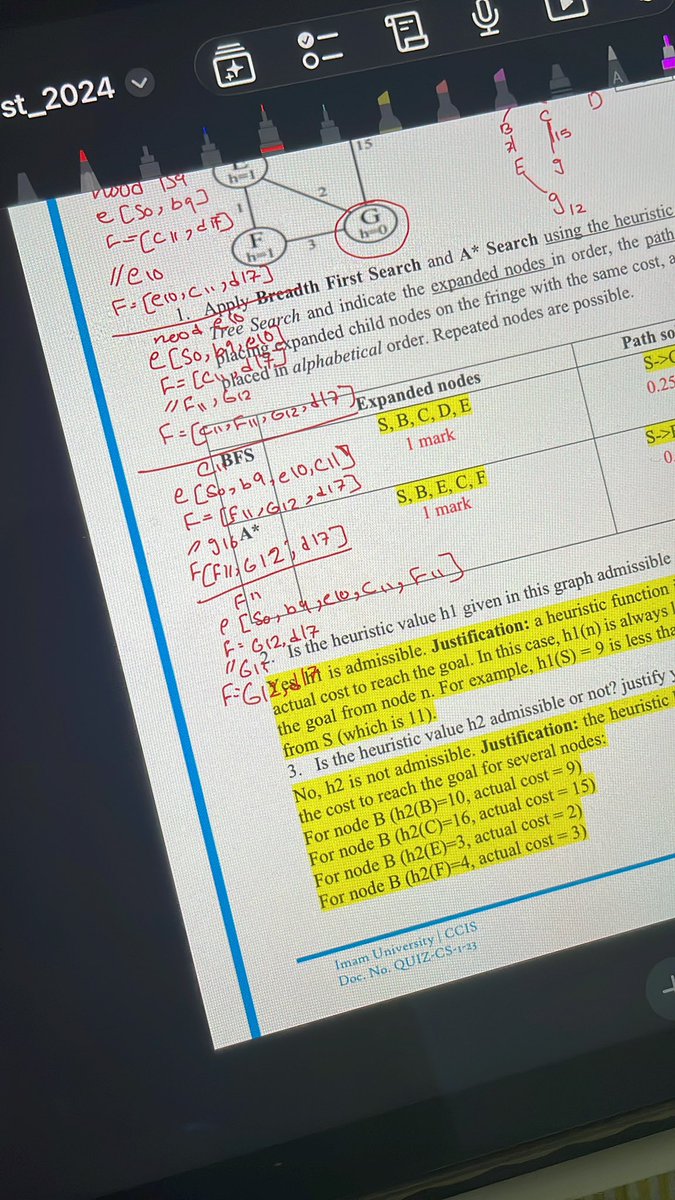 st_2024
B C D
15
E g
g 12
h=1
15
2
1
G
h=0
F
h=1
3
e [S0, b9]
F=[C11, d17]
//e10
F=[e10, C11, d17]
1. Apply Breadth First Search and A* Search using the heuristic
need e10
Tree Search and indicate the expanded nodes in order, the path
e [S0, b9, e10]
placing expanded child nodes on the fringe with the same cost, a
F=[C11, d17]
placed in alphabetical order. Repeated nodes are possible.
//F11, G12
F=[C11, F11, G12, d17]
Expanded nodes
Path so
BFS
S, B, C, D, E
S->C
1 mark
0.25
C11
e [S0, b9, e10, C11]
F=[F11, G12, d17]
A*
S, B, E, C, F
1 mark
F[F11, G12, d17]
F11
e [S0, b9, e10, C11, F11]
F= G12, d17
2. Is the heuristic value h1 given in this graph admissible
F=G12, d17
is admissible. Justification: a heuristic function
actual cost to reach the goal. In this case, h1(n) is always
the goal from node n. For example, h1(S) = 9 is less tha
from S (which is 11).
3. Is the heuristic value h2 admissible or not? justify
No, h2 is not admissible. Justification: the heuristic
the cost to reach the goal for several nodes:
For node B (h2(B)=10, actual cost = 9)
For node B (h2(C)=16, actual cost = 15)
For node B (h2(E)=3, actual cost = 2)
For node B (h2(F)=4, actual cost = 3)
Imam University | CCIS
Doc. No. QUIZ-CS-1-23